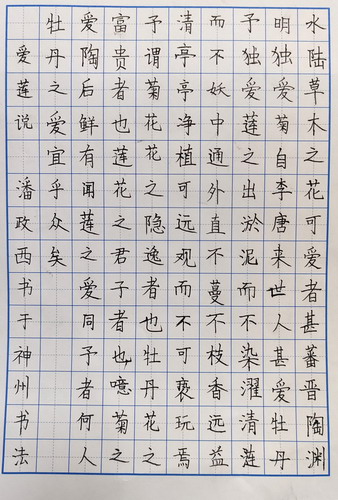 水陆草木之花可爱者甚蕃晋陶渊
明独爱菊自李唐来世人甚爱牡丹
予独爱莲之出淤泥而不染濯清涟
而不妖中通外直不蔓不枝香远益
清亭亭净植可远观而不可亵玩焉
予谓菊花花之隐逸者也牡丹花之
富贵者也莲花之君子者也噫菊之
爱陶后鲜有闻莲之爱同予者何人
牡丹之爱宜乎众矣
爱莲说潘政西书于神州书法